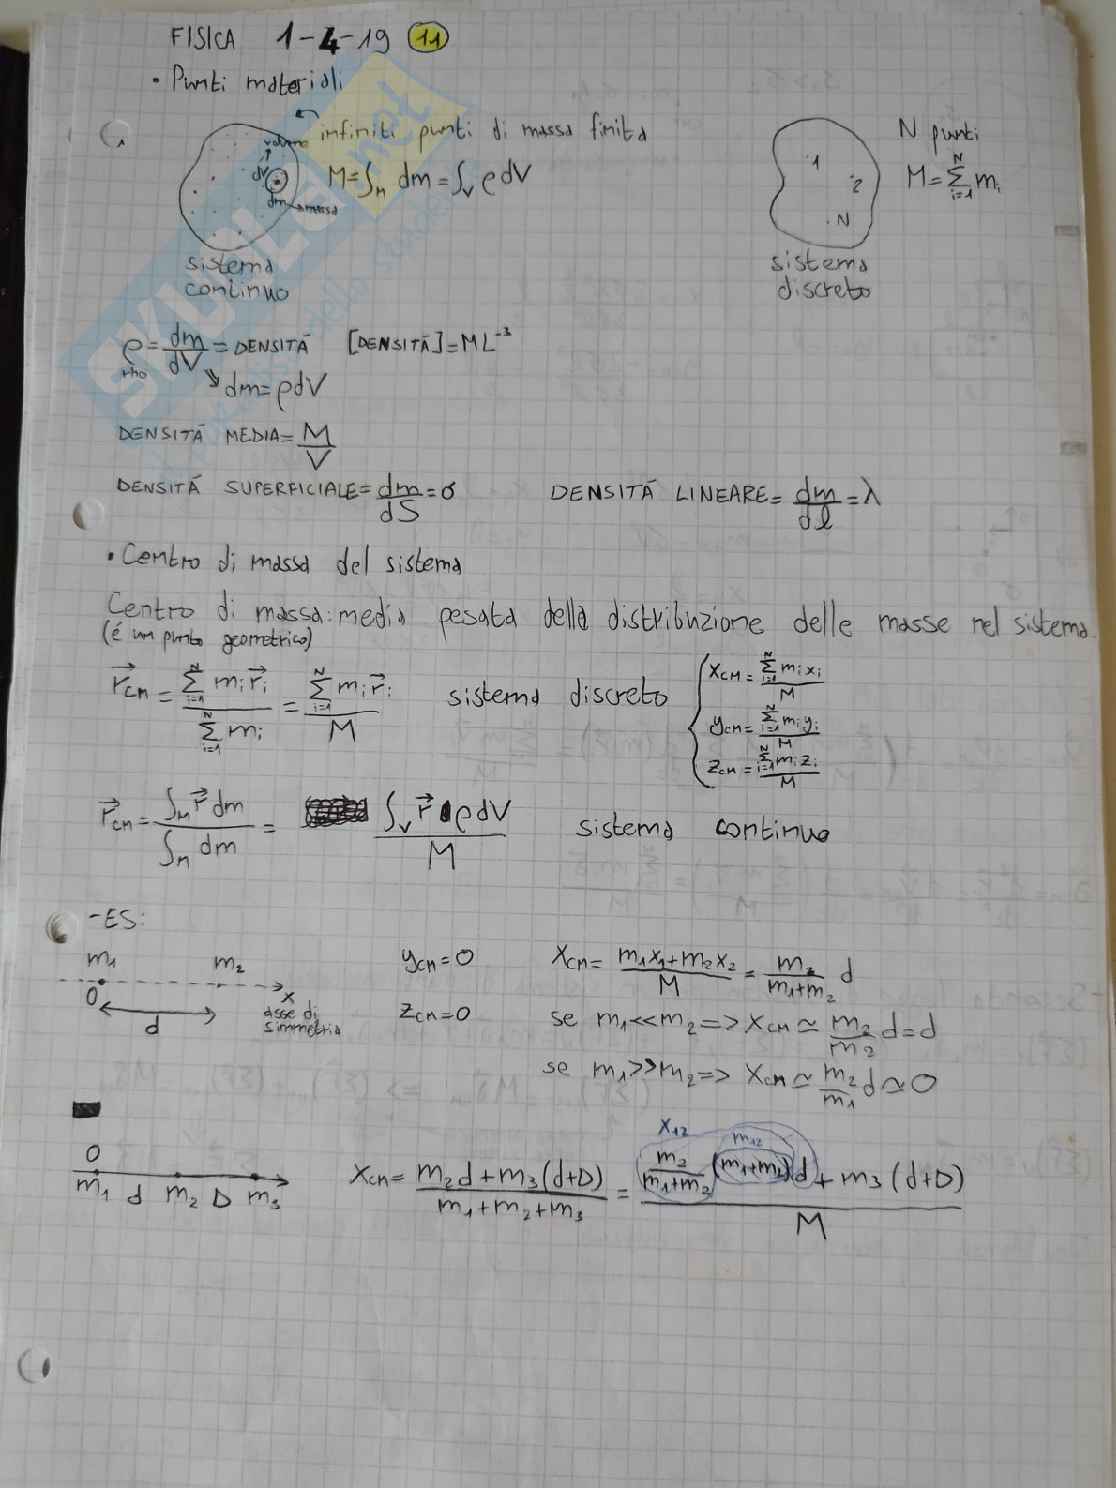 FISICA 1-4-19 11
• Punti materiali
infiniti punti di massa finita
N punti
volume
dV
dm → massa
M = ∫_M dm = ∫_V ρ dV
1
2
N
M = Σ_{i=1}^{N} m_i
sistema continuo
sistema discreto
ρ = dm/dV = DENSITÀ [DENSITÀ] = M L^-3
rho
dm = ρdV
DENSITÀ MEDIA = M/V
DENSITÀ SUPERFICIALE = dm/dS = σ DENSITÀ LINEARE = dm/dl = λ
• Centro di massa del sistema
Centro di massa: media pesata della distribuzione delle masse nel sistema
(é un punto geometrico)
r⃗_CM = Σ_{i=1}^{N} m_i r⃗_i / Σ_{i=1}^{N} m_i = Σ_{i=1}^{N} m_i r⃗_i / M sistema discreto
x_CM = Σ_{i=1}^{N} m_i x_i / M
y_CM = Σ_{i=1}^{N} m_i y_i / M
z_CM = Σ_{i=1}^{N} m_i z_i / M
r⃗_CM = ∫_M r⃗ dm / ∫_M dm = ∫_V r⃗ ρdV / M sistema continuo
-ES:
m1 m2
0 x
d
asse di simmetria
y_CM = 0
z_CM = 0
x_CM = (m1x1 + m2x2) / M = m2/(m1+m2) d
se m1 << m2 => x_CM ≃ m2/m2 d = d
se m1 >> m2 => x_CM ≃ m2/m1 d ≃ 0
0
m1 d m2 D m3
x12
m12
x_CM = (m2d + m3(d+D)) / (m1+m2+m3) = (m2/(m1+m2) (m1+m2)d + m3(d+D)) / M
SKUOLA.net